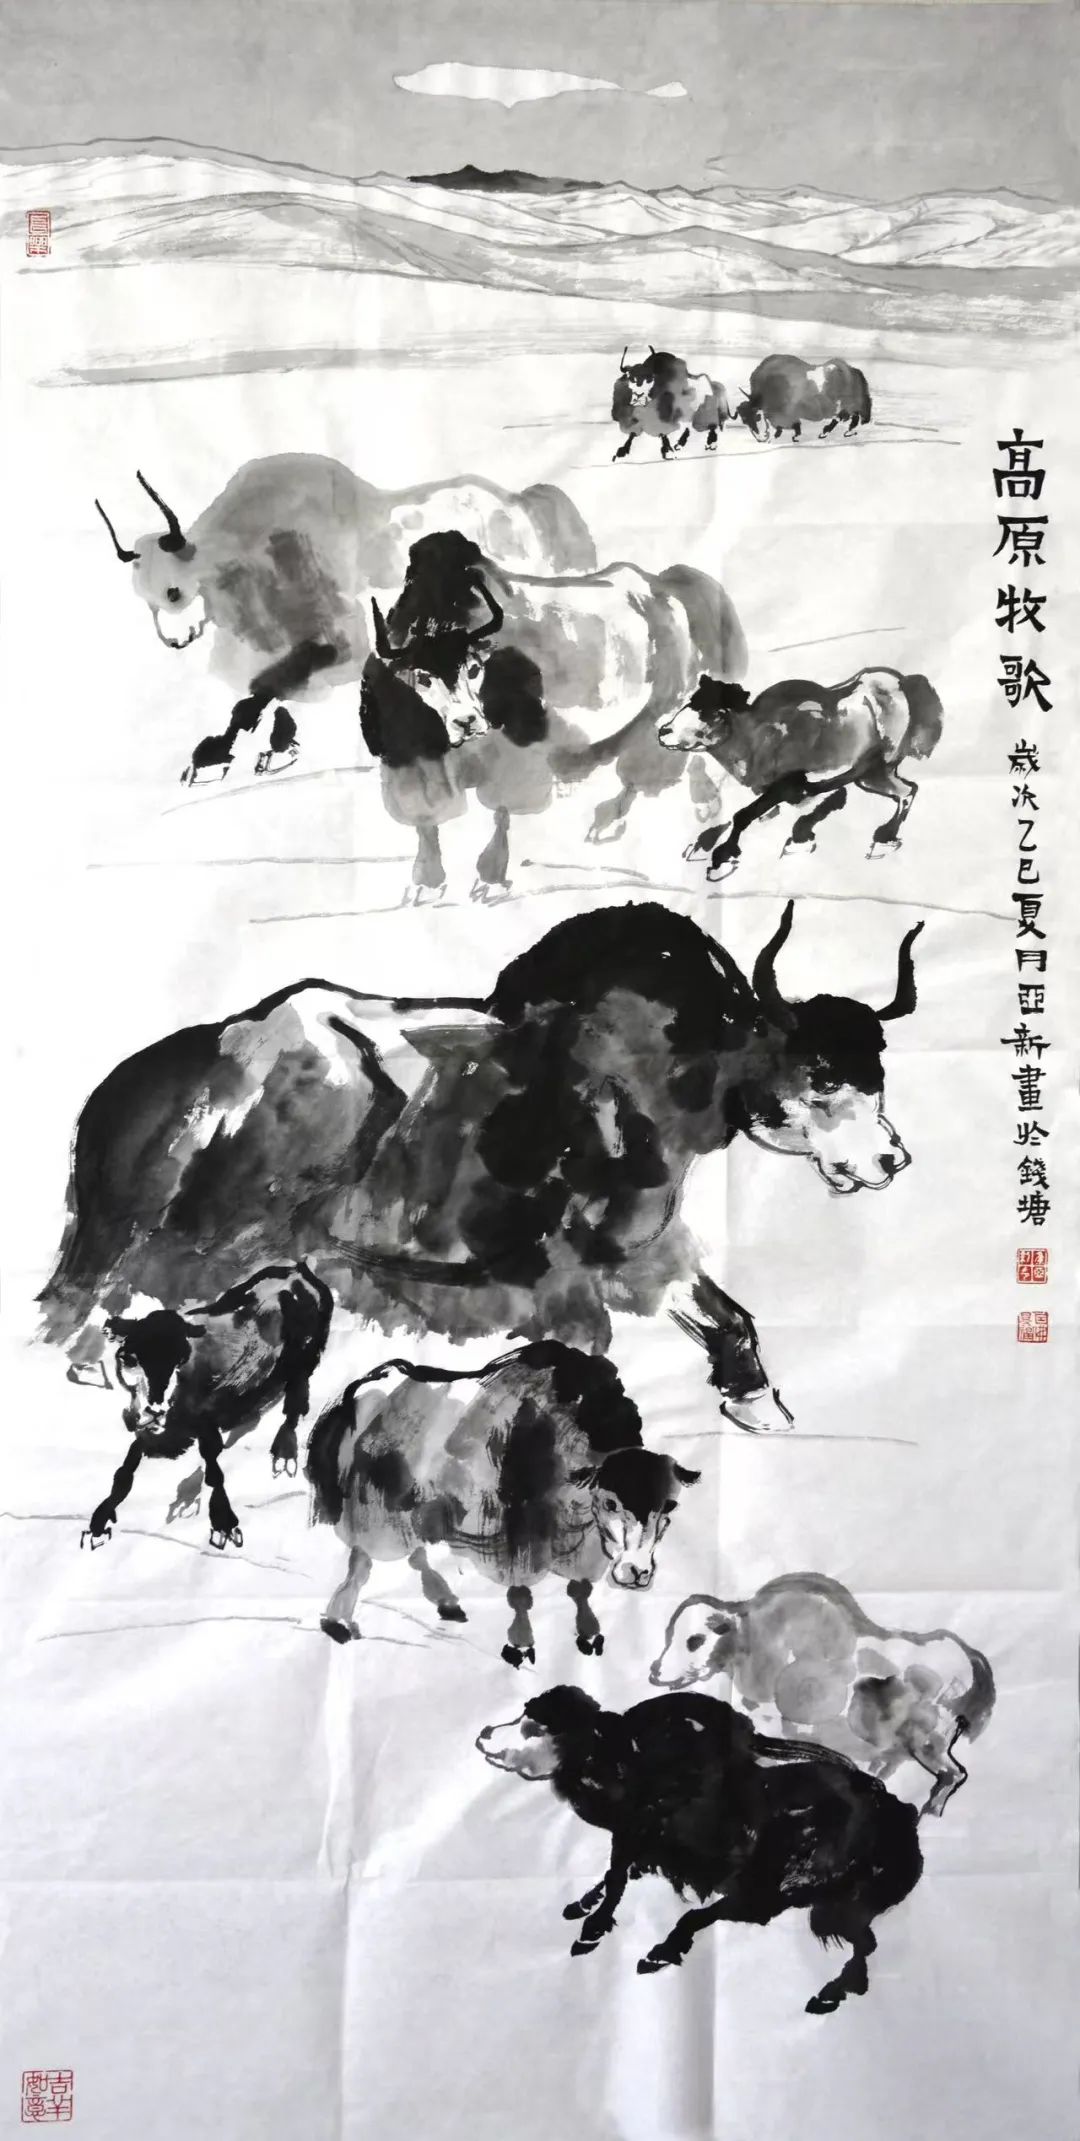 高原牧歌
歲次乙巳夏月亞新畫於錢塘
吉羊如意